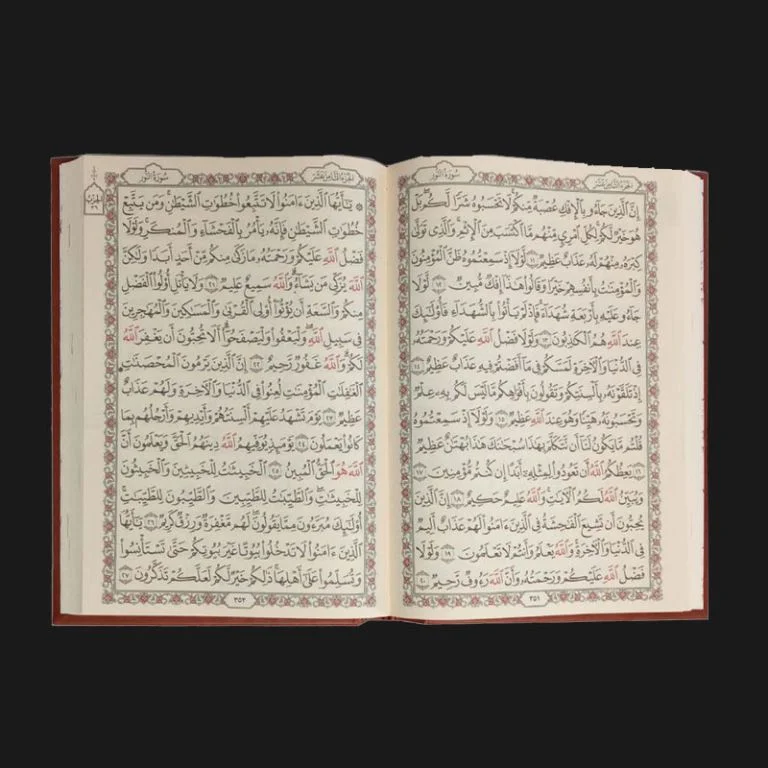 الجزء الثامن عشر
سورة النور
إِنَّ ٱلَّذِينَ جَآءُو بِٱلۡإِفۡكِ عُصۡبَةٞ مِّنكُمۡۚ لَا تَحۡسَبُوهُ شَرّٗا لَّكُمۖ بَلۡ
هُوَ خَيۡرٞ لَّكُمۡۚ لِكُلِّ ٱمۡرِيٕٖ مِّنۡهُم مَّا ٱكۡتَسَبَ مِنَ ٱلۡإِثۡمِۚ وَٱلَّذِي تَوَلَّىٰ
كِبۡرَهُۥ مِنۡهُمۡ لَهُۥ عَذَابٌ عَظِيمٞ ١١ لَّوۡلَآ إِذۡ سَمِعۡتُمُوهُ ظَنَّ ٱلۡمُؤۡمِنُونَ
وَٱلۡمُؤۡمِنَٰتُ بِأَنفُسِهِمۡ خَيۡرٗا وَقَالُواْ هَٰذَآ إِفۡكٞ مُّبِينٞ ١٢ لَّوۡلَا
جَآءُو عَلَيۡهِ بِأَرۡبَعَةِ شُهَدَآءَۚ فَإِذۡ لَمۡ يَأۡتُواْ بِٱلشُّهَدَآءِ فَأُوْلَٰٓئِكَ
عِندَ ٱللَّهِ هُمُ ٱلۡكَٰذِبُونَ ١٣ وَلَوۡلَا فَضۡلُ ٱللَّهِ عَلَيۡكُمۡ وَرَحۡمَتُهُۥ
فِي ٱلدُّنۡيَا وَٱلۡأٓخِرَةِ لَمَسَّكُمۡ فِي مَآ أَفَضۡتُمۡ فِيهِ عَذَابٌ عَظِيمٌ ١٤
إِذۡ تَلَقَّوۡنَهُۥ بِأَلۡسِنَتِكُمۡ وَتَقُولُونَ بِأَفۡوَاهِكُم مَّا لَيۡسَ لَكُم بِهِۦ عِلۡمٞ
وَتَحۡسَبُونَهُۥ هَيِّنٗا وَهُوَ عِندَ ٱللَّهِ عَظِيمٞ ١٥ وَلَوۡلَآ إِذۡ سَمِعۡتُمُوهُ
قُلۡتُم مَّا يَكُونُ لَنَآ أَن نَّتَكَلَّمَ بِهَٰذَا سُبۡحَٰنَكَ هَٰذَا بُهۡتَٰنٌ عَظِيمٞ
١٦ يَعِظُكُمُ ٱللَّهُ أَن تَعُودُواْ لِمِثۡلِهِۦٓ أَبَدًا إِن كُنتُم مُّؤۡمِنِينَ ١٧
وَيُبَيِّنُ ٱللَّهُ لَكُمُ ٱلۡأٓيَٰتِۚ وَٱللَّهُ عَلِيمٌ حَكِيمٌ ١٨ إِنَّ ٱلَّذِينَ
يُحِبُّونَ أَن تَشِيعَ ٱلۡفَٰحِشَةُ فِي ٱلَّذِينَ ءَامَنُواْ لَهُمۡ عَذَابٌ أَلِيمٞ
فِي ٱلدُّنۡيَا وَٱلۡأٓخِرَةِۚ وَٱللَّهُ يَعۡلَمُ وَأَنتُمۡ لَا تَعۡلَمُونَ ١٩ وَلَوۡلَا
فَضۡلُ ٱللَّهِ عَلَيۡكُمۡ وَرَحۡمَتُهُۥ وَأَنَّ ٱللَّهَ رَءُوفٞ رَّحِيمٞ ٢٠
٣٥١
الجزء الثامن عشر
سورة النور
۞ يَٰٓأَيُّهَا ٱلَّذِينَ ءَامَنُواْ لَا تَتَّبِعُواْ خُطُوَٰتِ ٱلشَّيۡطَٰنِۚ وَمَن يَتَّبِعۡ
خُطُوَٰتِ ٱلشَّيۡطَٰنِ فَإِنَّهُۥ يَأۡمُرُ بِٱلۡفَحۡشَآءِ وَٱلۡمُنكَرِۚ وَلَوۡلَا
فَضۡلُ ٱللَّهِ عَلَيۡكُمۡ وَرَحۡمَتُهُۥ مَا زَكَىٰ مِنكُم مِّنۡ أَحَدٍ أَبَدٗا وَلَٰكِنَّ
ٱللَّهَ يُزَكِّي مَن يَشَآءُۗ وَٱللَّهُ سَمِيعٌ عَلِيمٞ ٢١ وَلَا يَأۡتَلِ أُوْلُواْ ٱلۡفَضۡلِ
مِنكُمۡ وَٱلسَّعَةِ أَن يُؤۡتُوٓاْ أُوْلِي ٱلۡقُرۡبَىٰ وَٱلۡمَسَٰكِينَ وَٱلۡمُهَٰجِرِينَ
فِي سَبِيلِ ٱللَّهِۖ وَلۡيَعۡفُواْ وَلۡيَصۡفَحُوٓاْۗ أَلَا تُحِبُّونَ أَن يَغۡفِرَ ٱللَّهُ
لَكُمۡۚ وَٱللَّهُ غَفُورٞ رَّحِيمٌ ٢٢ إِنَّ ٱلَّذِينَ يَرۡمُونَ ٱلۡمُحۡصَنَٰتِ
ٱلۡغَٰفِلَٰتِ ٱلۡمُؤۡمِنَٰتِ لُعِنُواْ فِي ٱلدُّنۡيَا وَٱلۡأٓخِرَةِ وَلَهُمۡ عَذَابٌ
عَظِيمٞ ٢٣ يَوۡمَ تَشۡهَدُ عَلَيۡهِمۡ أَلۡسِنَتُهُمۡ وَأَيۡدِيهِمۡ وَأَرۡجُلُهُم بِمَا
كَانُواْ يَعۡمَلُونَ ٢٤ يَوۡمَئِذٖ يُوَفِّيهِمُ ٱللَّهُ دِينَهُمُ ٱلۡحَقَّ وَيَعۡلَمُونَ أَنَّ
ٱللَّهَ هُوَ ٱلۡحَقُّ ٱلۡمُبِينُ ٢٥ ٱلۡخَبِيثَٰتُ لِلۡخَبِيثِينَ وَٱلۡخَبِيثُونَ
لِلۡخَبِيثَٰتِۖ وَٱلطَّيِّبَٰتُ لِلطَّيِّبِينَ وَٱلطَّيِّبُونَ لِلطَّيِّبَٰتِۚ
أُوْلَٰٓئِكَ مُبَرَّءُونَ مِمَّا يَقُولُونَۖ لَهُم مَّغۡفِرَةٞ وَرِزۡقٞ كَرِيمٞ ٢٦ يَٰٓأَيُّهَا
ٱلَّذِينَ ءَامَنُواْ لَا تَدۡخُلُواْ بُيُوتًا غَيۡرَ بُيُوتِكُمۡ حَتَّىٰ تَسۡتَأۡنِسُواْ
وَتُسَلِّمُواْ عَلَىٰٓ أَهۡلِهَاۚ ذَٰلِكُمۡ خَيۡرٞ لَّكُمۡ لَعَلَّكُمۡ تَذَكَّرُونَ ٢٧
٣٥٢